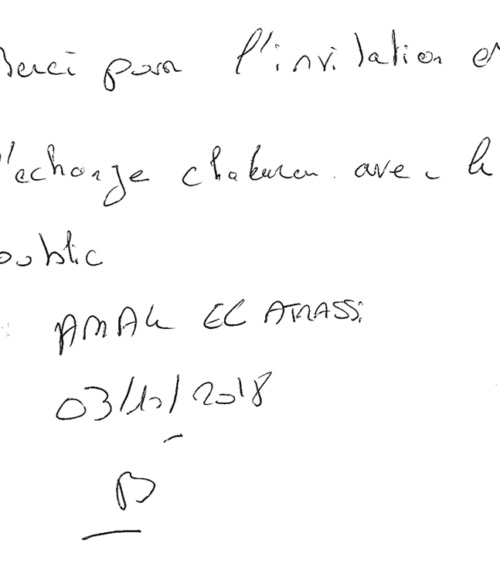 Merci pour l'invitation et
l'echange chaleureux avec le
public
AMAL EL ATRASSi
03/10/2018